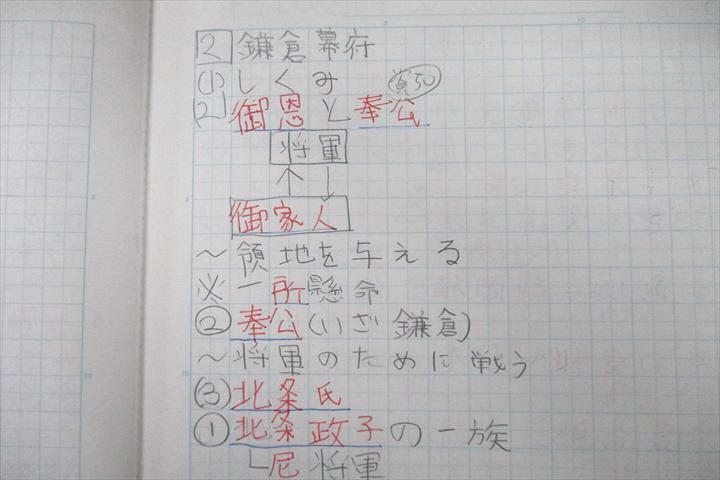 2 鎌倉幕府
(1) しくみ
資50
(2) 御恩と奉公
将軍
↑ ↓
御家人
〜領地を与える
※一所懸命
② 奉公(いざ鎌倉)
〜将軍のために戦う
(3) 北条氏
① 北条政子の一族
└尼将軍